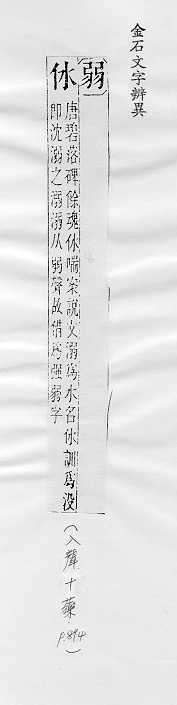 金石文字辨異
弱
㲻 唐碧落碑餘魂㲻喘案說文溺爲水名㲻訓爲没
即沈溺之溺溺从弱聲故借爲强弱字
(入聲十藥 p.894)